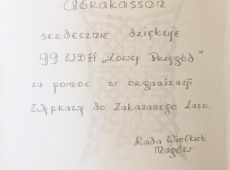 Abrakasson
serdecznie dziękuje
99 WDH „Łowcy Przygód"
za pomoc w organizacji
Wyprawy do Zakazanego Lasu.
Rada Wielkich
Magów